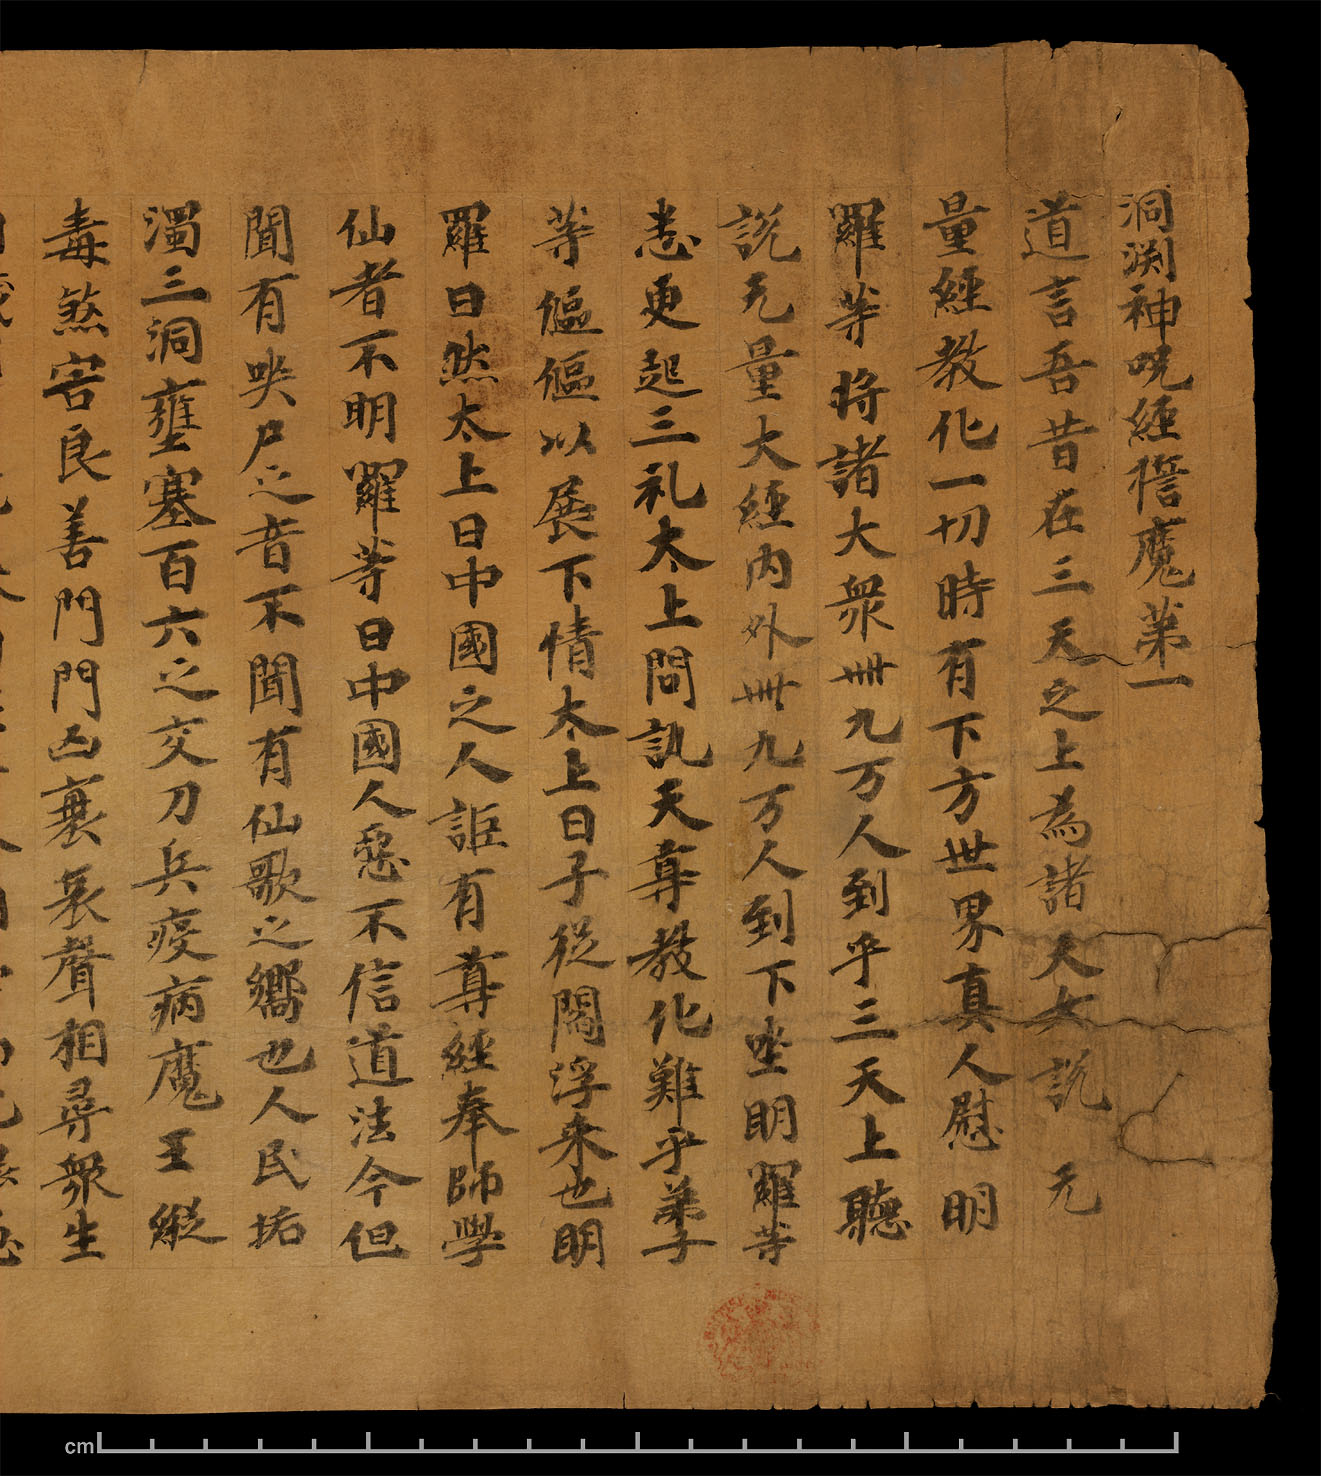 洞渕神呪經誓魔第一
道言吾昔在三天之上為諸天女説无
量經教化一切時有下方世界真人慰明
羅等将諸大衆卌九万人到乎三天上聽
説无量大經内外卌九万人到下坐明羅等
悉更起三礼太上問訊天尊教化難乎弟子
等傴傴以展下情太上曰子從閻浮来也明
羅曰然太上曰中國之人詎有尊經奉師學
仙者不明羅等曰中國人惡不信道法今但
聞有哭尸之音不聞有仙歌之嚮也人民垢
濁三洞壅塞百六之交刀兵疫病魔王縱
毒煞害良善門門凶衰哀聲相尋衆生